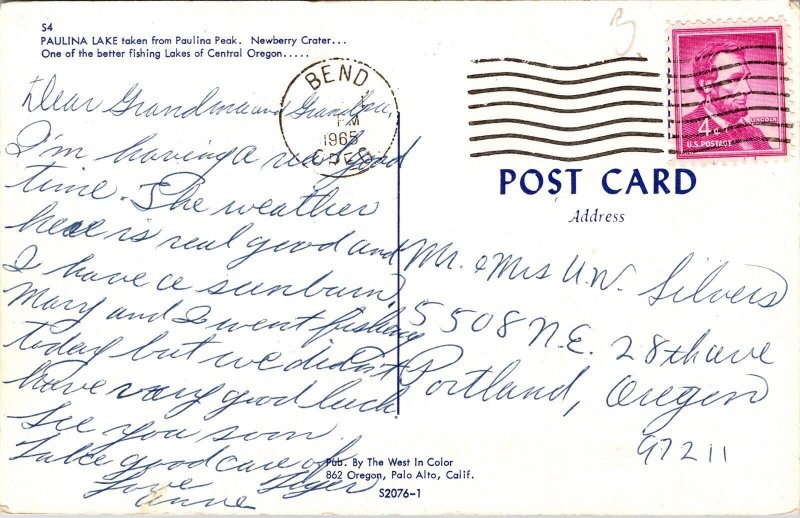 S4
PAULINA LAKE taken from Paulina Peak. Newberry Crater...
One of the better fishing Lakes of Central Oregon.....
Dear Grandma and Grandpa,
I'm having a real good
time. The weather
here is real good and
I have a sunburn.
Mary and I went fishing
today but we didn't
have very good luck
See you soon.
Take good care of
Tiger
Love
Anne
BEND
PM
1965
OREG
4¢
LINCOLN
U.S. POSTAGE
POST CARD
Address
Mr. & Mrs U.W. Silvers
5508 N.E. 28th ave
Portland, Oregon
97211
Pub. By The West In Color
862 Oregon, Palo Alto, Calif.
S2076-1